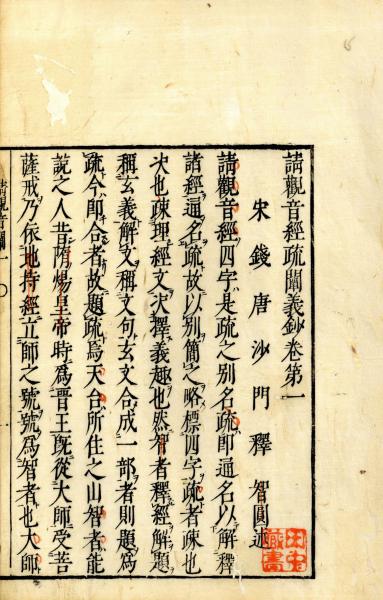 請觀音經疏闡義鈔卷第一
宋錢唐沙門釋智圓述
請觀音經四字是疏之別名疏即通名以解釋
諸經通名疏故以別簡之略標四字疏者疎也
決也疎理經文決擇義趣也然智者釋經解題
稱玄義解文稱文句玄文合成一部者則題為
疏今即合者故題疏焉天台所住之山智者能
說之人昔隋煬皇帝時為晉王既從大師受菩
薩戒乃依地持經立師之號號為智者也大師
請觀音闡一